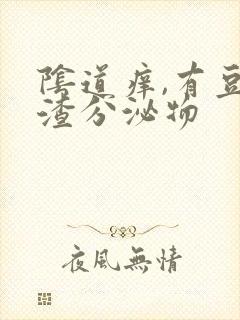 陰道痒,有豆
渣分泌物
夜風無情